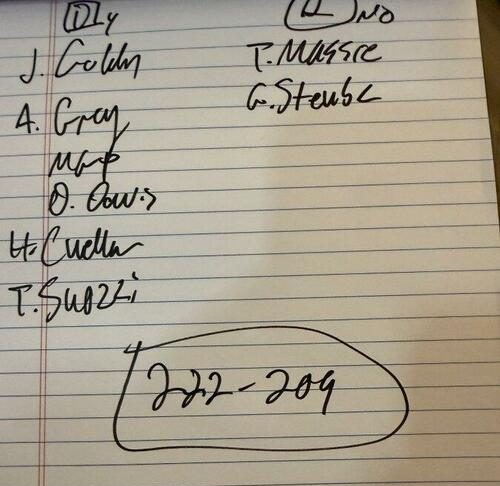 D y
J. Goldn
A. Gray
MGP
D. Davis
H. Cuellar
T. Suozzi
R NO
T. Massie
G. Steube
222-209